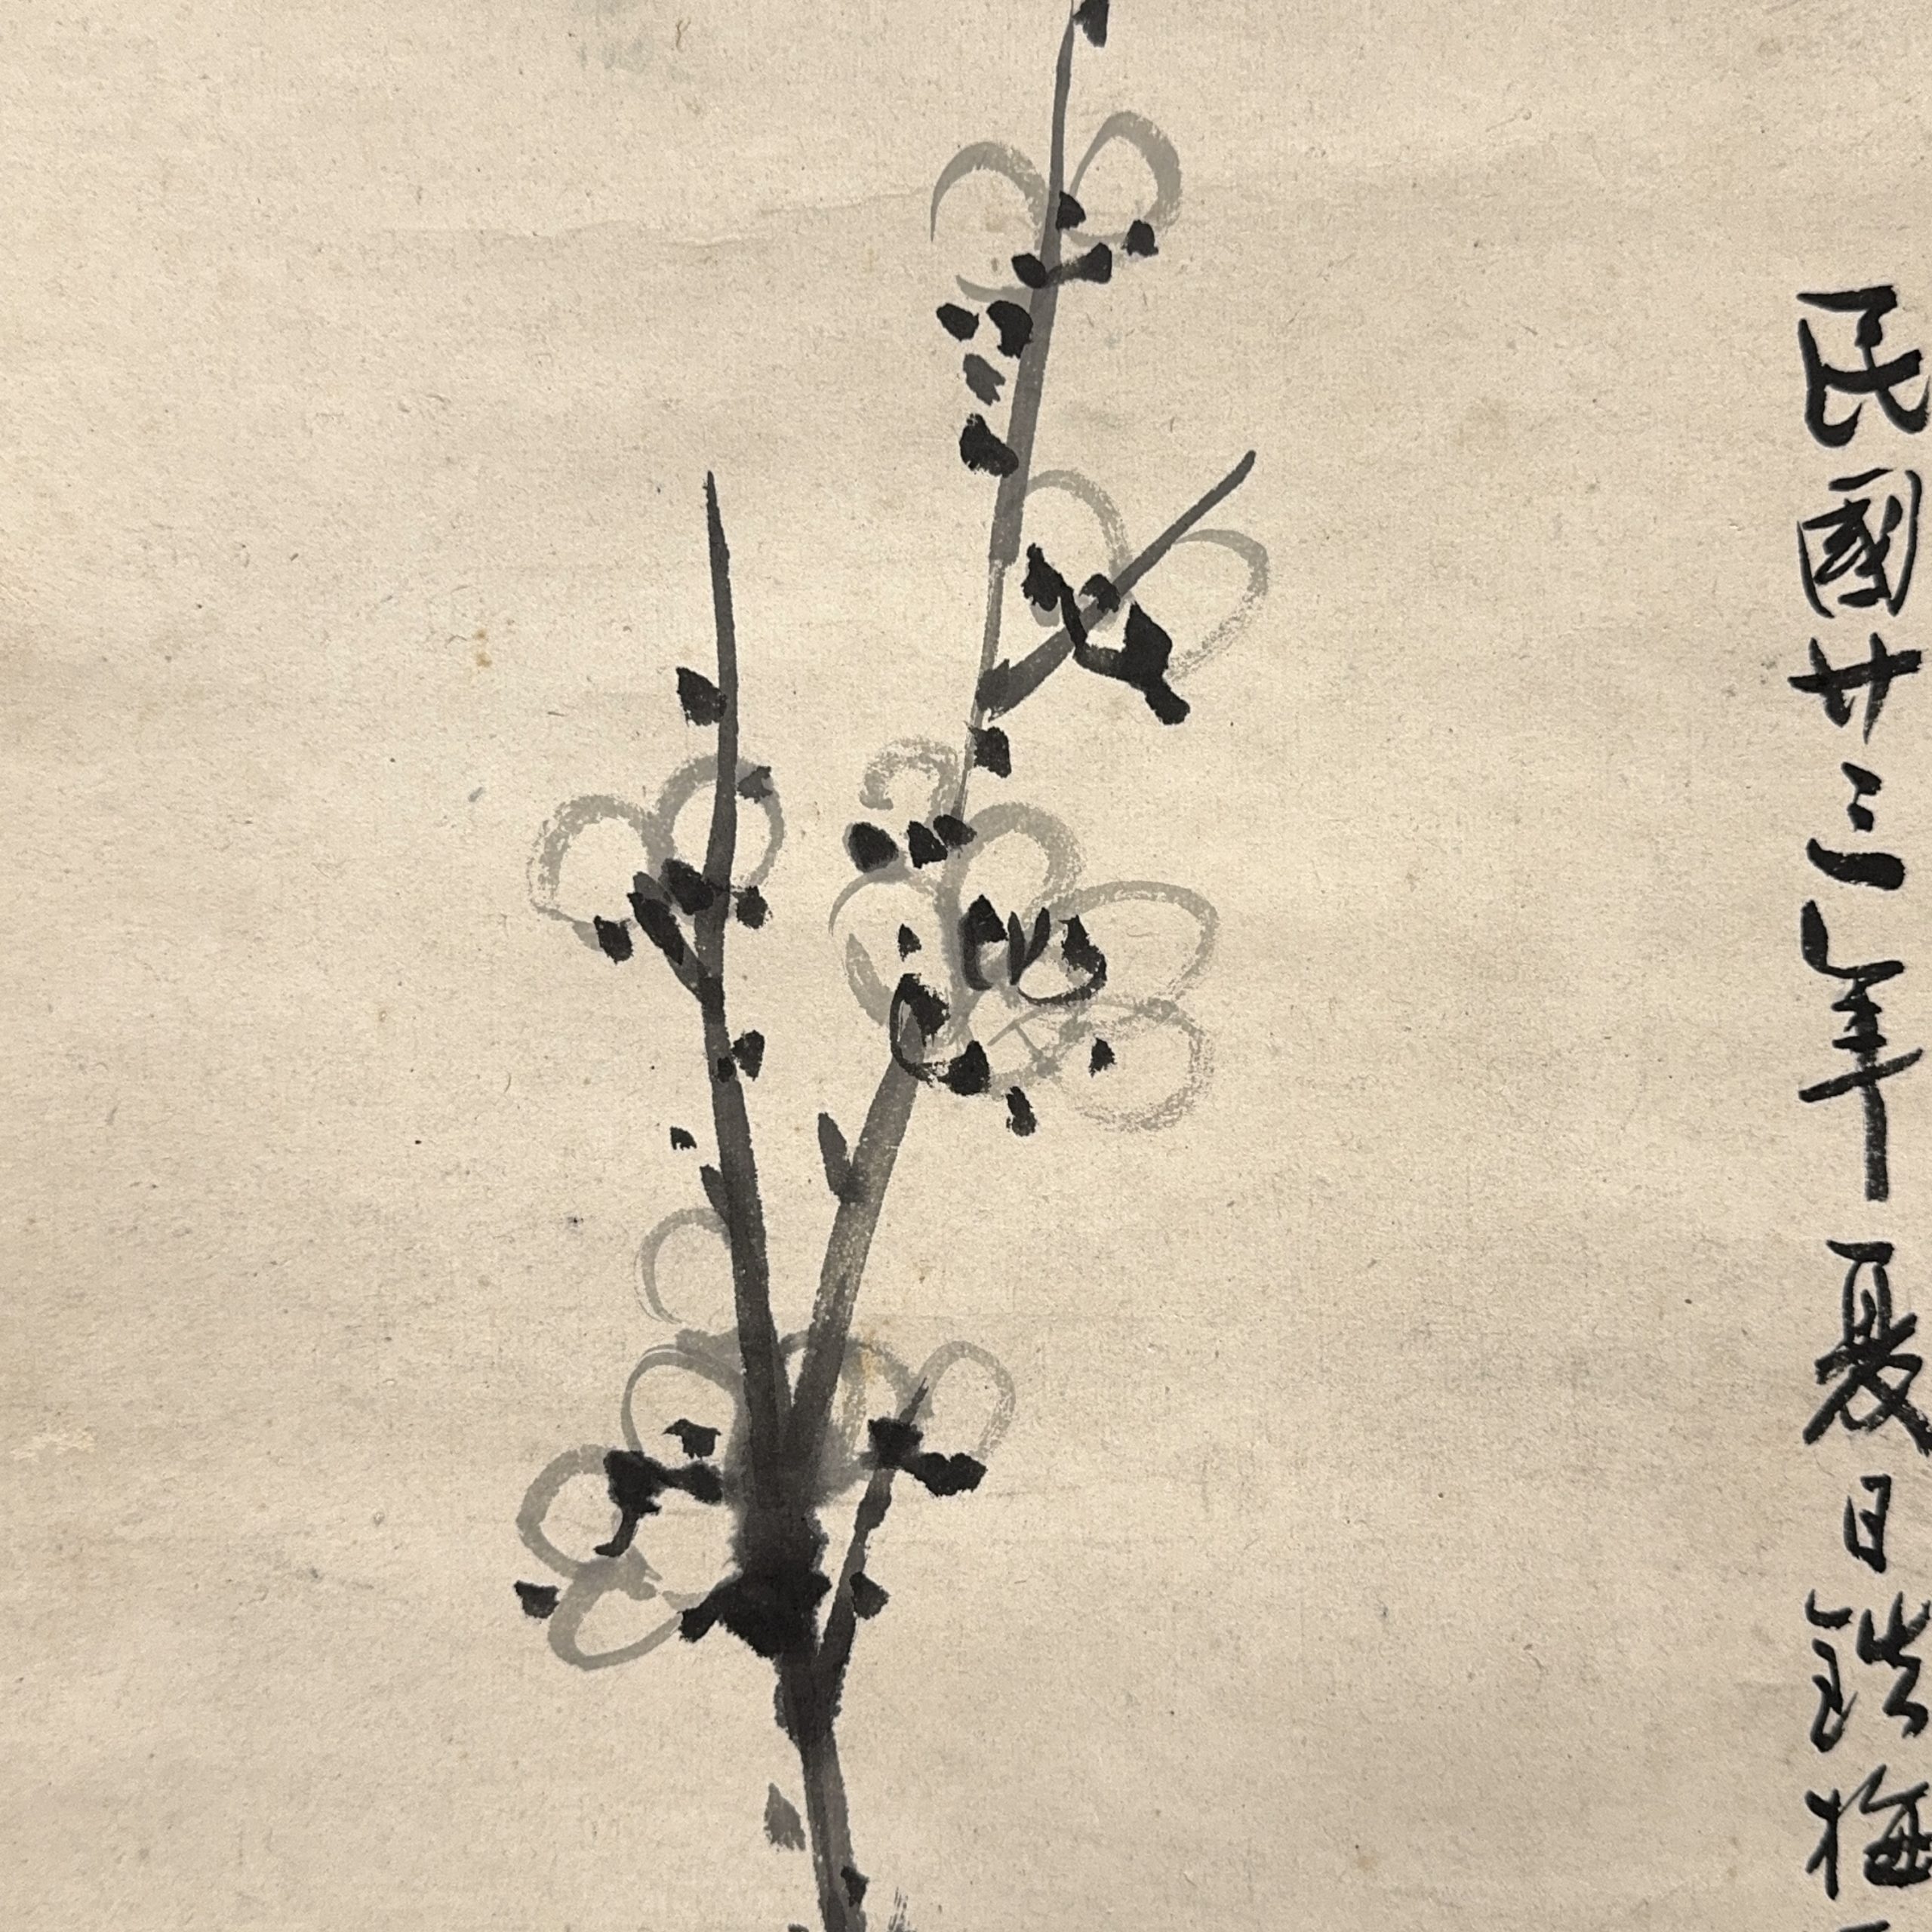 民國廿三年夏日梅